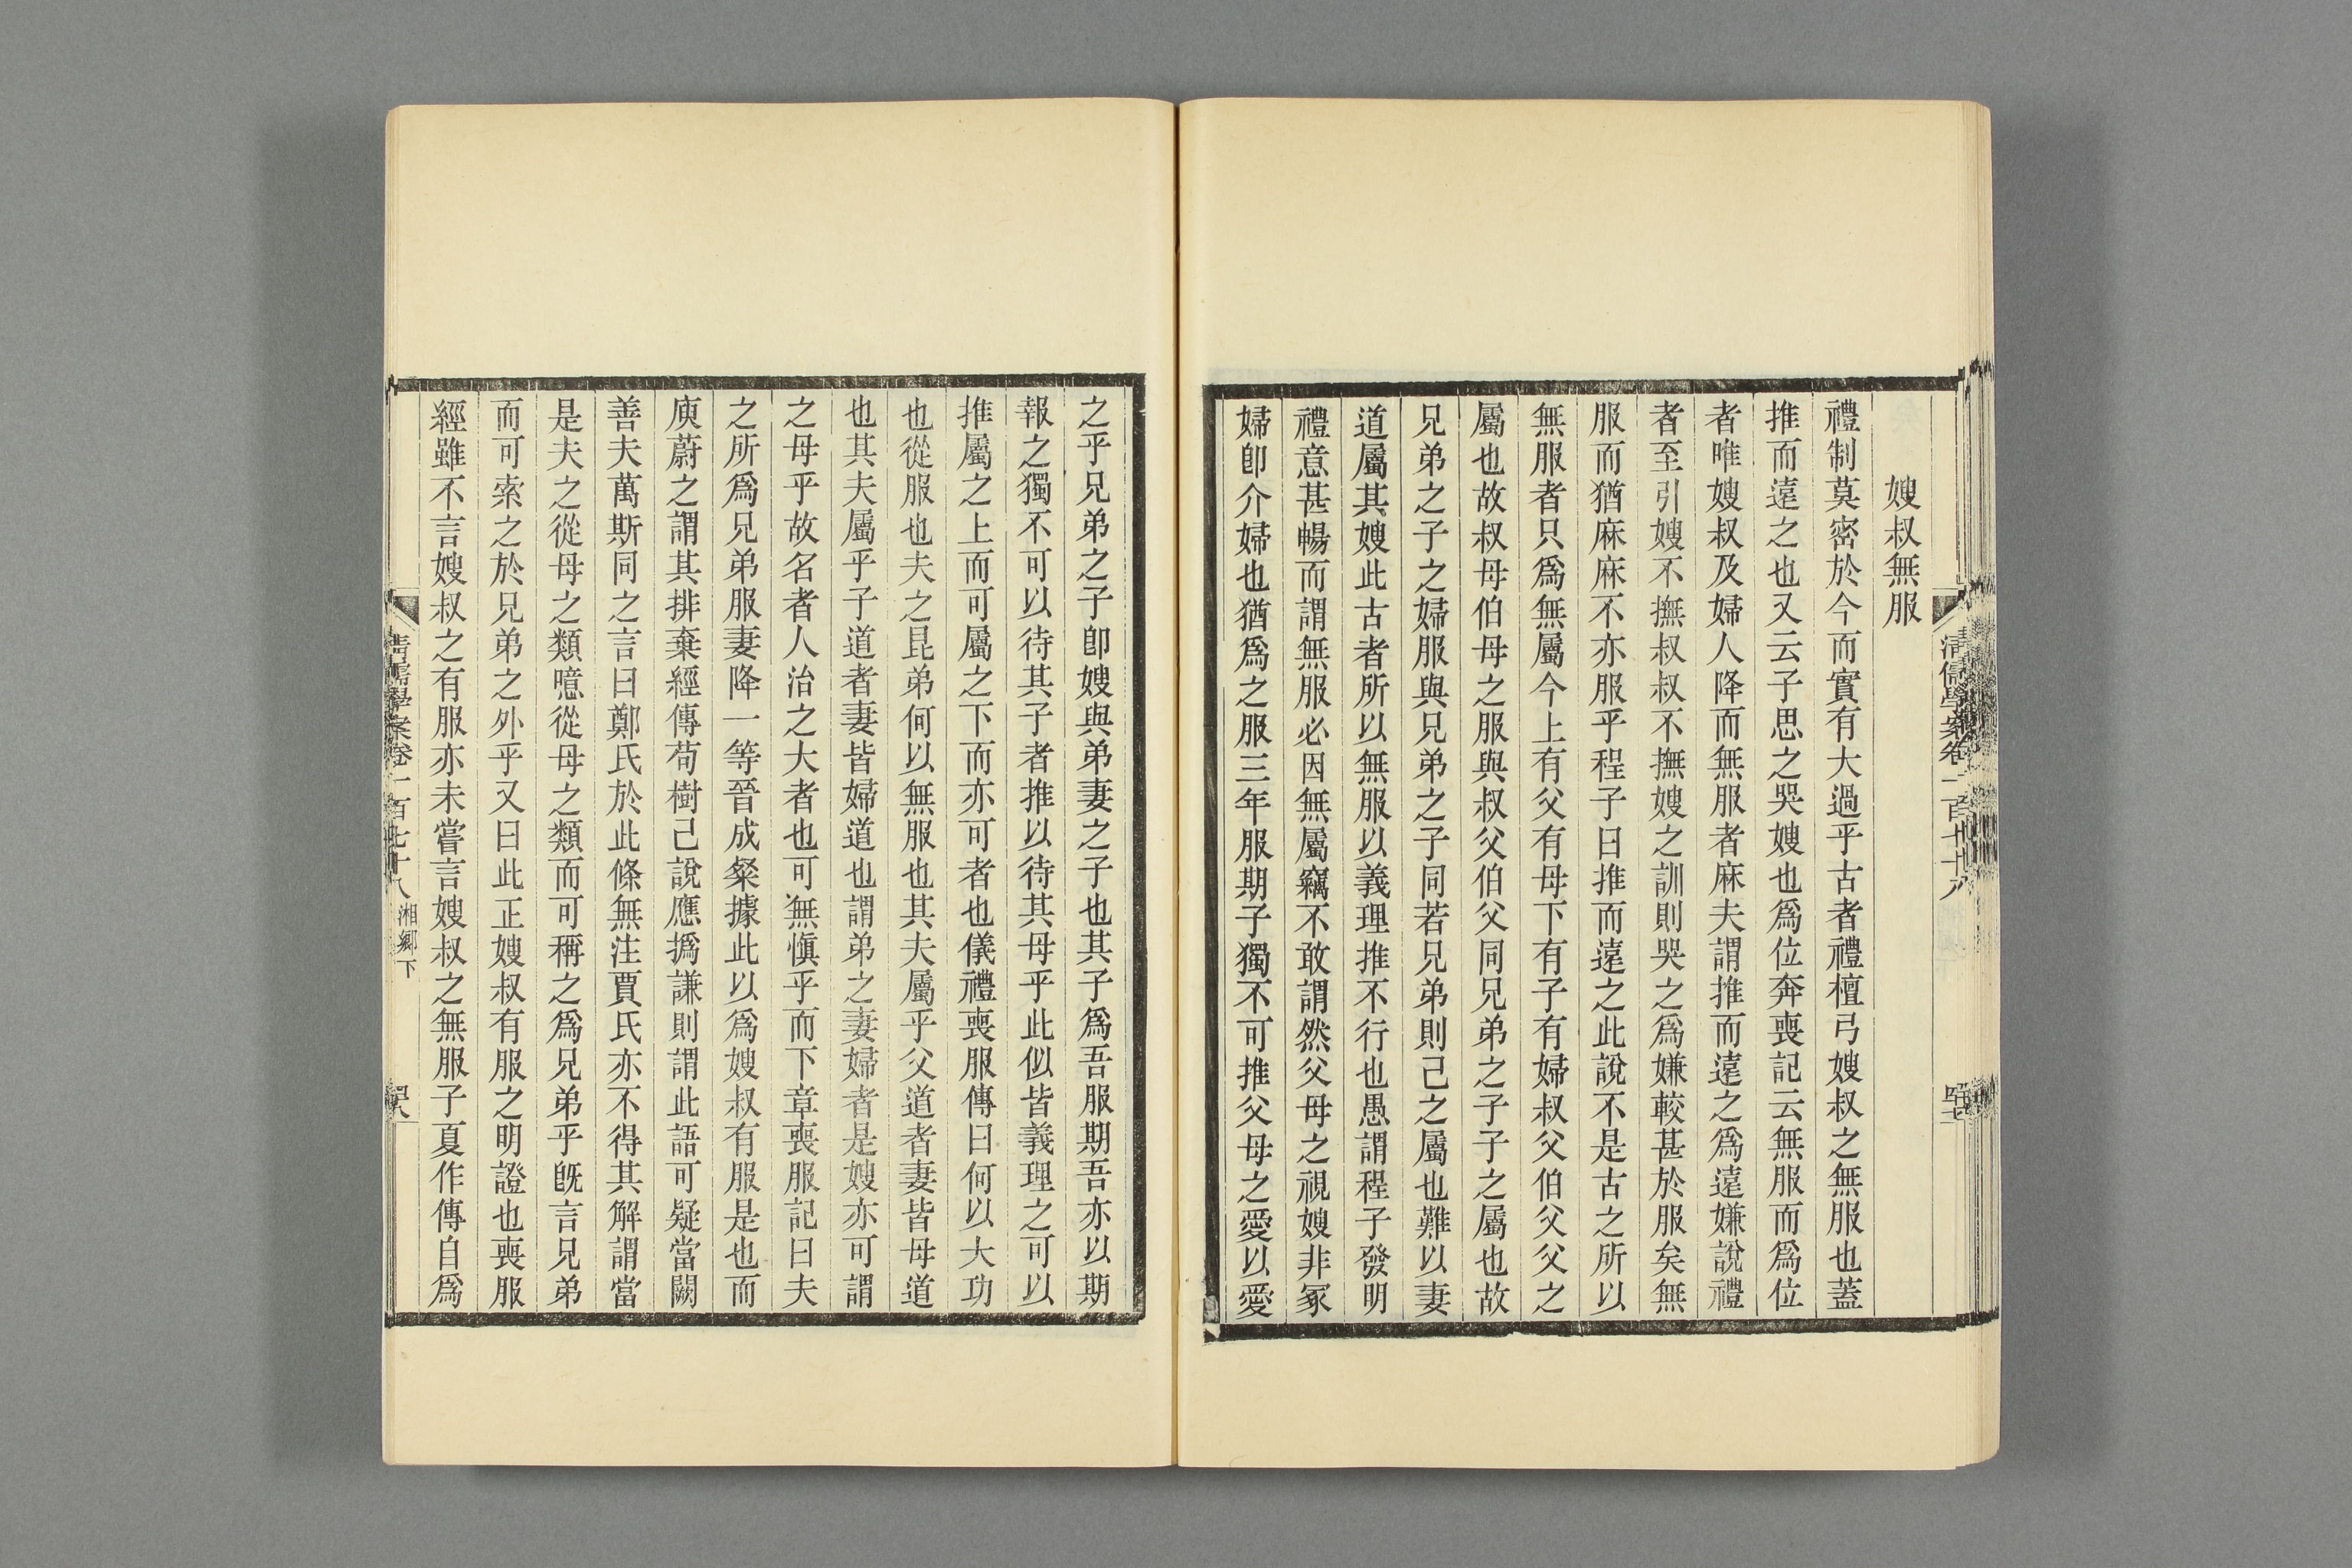 嫂叔無服
禮制莫密於今而實有大過乎古者禮檀弓嫂叔之無服也蓋
推而遠之也又云子思之哭嫂也爲位奔喪記云無服而爲位
者唯嫂叔及婦人降而無服者麻夫謂推而遠之爲遠嫌說禮
者至引嫂不撫叔叔不撫嫂之訓則哭之爲嫌較甚於服矣無
服而猶麻麻不亦服乎程子曰推而遠之此說不是古之所以
無服者只爲無屬今上有父有母下有子有婦叔父伯父父之
屬也故叔母伯母之服與叔父伯父同兄弟之子子之屬也故
兄弟之子之婦服與兄弟之子同若兄弟則己之屬也難以妻
道屬其嫂此古者所以無服以義理推不行也愚謂程子發明
禮意甚暢而謂無服必因無屬竊不敢謂然父母之視嫂非冢
婦卽介婦也猶爲之服三年服期子獨不可推父母之愛以愛
之乎兄弟之子卽嫂與弟妻之子也其子爲吾服期吾亦以期
報之獨不可以待其子者推以待其母乎此似皆義理之可以
推屬之上而可屬之下而亦可者也儀禮喪服傳曰何以大功
也從服也夫之昆弟何以無服也其夫屬乎父道者妻皆母道
也其夫屬乎子道者妻皆婦道也謂弟之妻婦者是嫂亦可謂
之母乎故名者人治之大者也可無愼乎而下章喪服記曰夫
之所爲兄弟服妻降一等晉成粲據此以爲嫂叔有服是也而
庾蔚之謂其排棄經傳苟樹己說應撝謙則謂此語可疑當闕
善夫萬斯同之言曰鄭氏於此條無注賈氏亦不得其解謂當
是夫之從母之類噫從母之類而可稱之爲兄弟乎旣言兄弟
而可索之於兄弟之外乎又曰此正嫂叔有服之明證也喪服
經雖不言嫂叔之有服亦未嘗言嫂叔之無服子夏作傳自爲
清儒學案卷一百七十八 湘鄉下